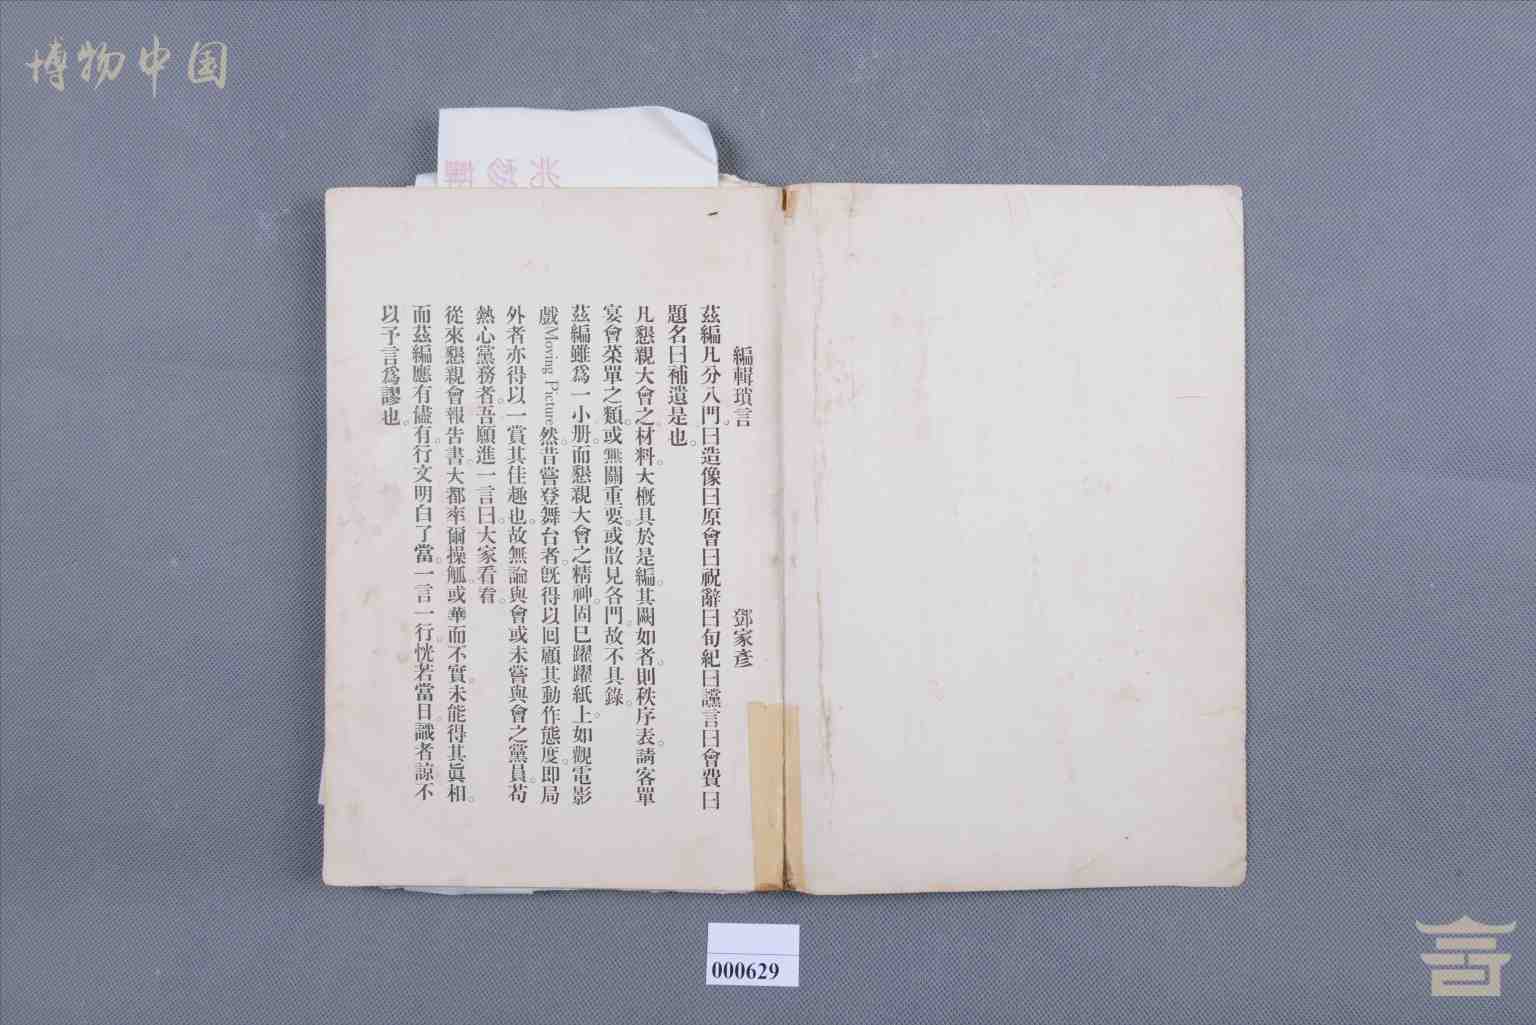 博物中国
兆珍博
編輯瑣言
鄧家彥
茲編凡分八門。曰造像曰原會曰祝辭曰句紀曰讜言曰會費曰
題名曰補遺是也。
凡懇親大會之材料。大槪具於是編。其闕如者。則秩序表。請客單
宴會菜單之類。或無關重要。或散見各門。故不具錄。
茲編雖爲一小册。而懇親大會之精神。固已躍躍紙上。如觀電影
戲Moving Picture然。昔嘗登舞台者。旣得以回顧其動作態度。卽局
外者亦得以一賞其佳趣也。故無論與會或未嘗與會之黨員。苟
熱心黨務者。吾願進一言曰。大家看看。
從來懇親會報告書。大都率爾操觚。或華而不實。未能得其眞相。
而茲編應有儘有。行文明白了當。一言一行。恍若當日。識者諒不
以予言爲謬也。
000629